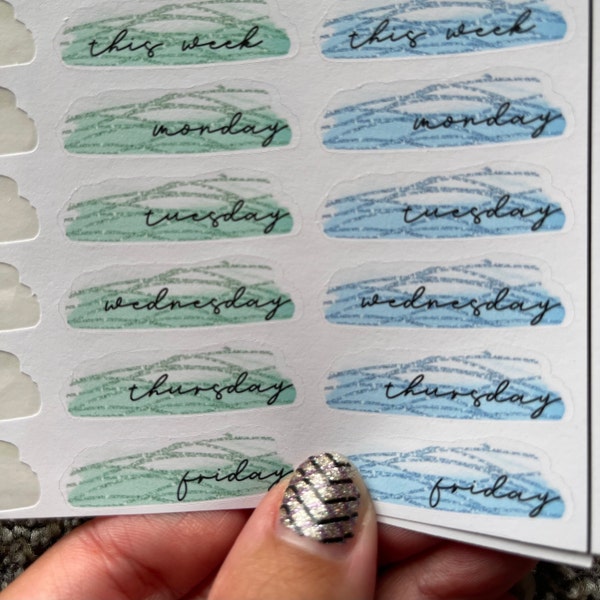 this week this week
monday monday
tuesday tuesday
wednesday wednesday
thursday thursday
friday friday